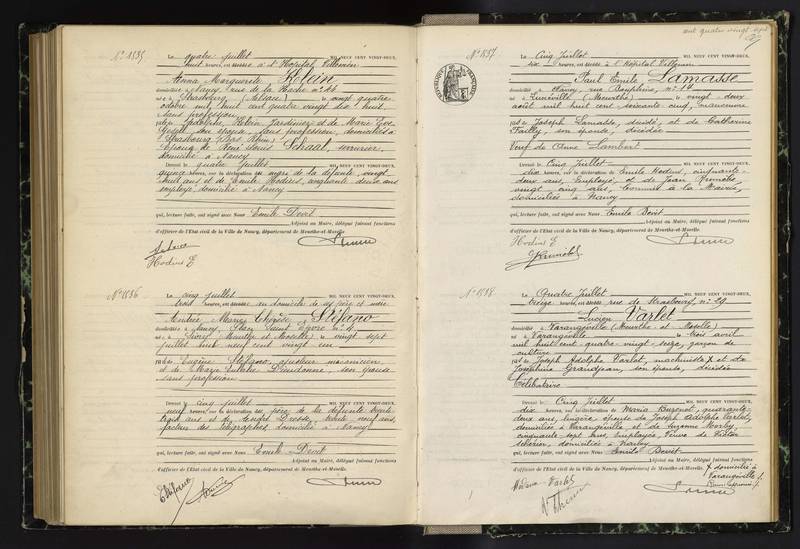 N° 1535
Le quatre juillet MIL NEUF CENT VINGT-DEUX,
huit heures, est décédée à l'Hôpital Villemin
Anna Marguerite Klein
domiciliée à Nancy, rue de la
née à Strasbourg (Alsace) le vingt quatre
octobre mil huit cent quatre vingt dix huit
sans profession
fille de Adolphe Klein, jardinier et de Marie Eve
son épouse, sans profession, domiciliés à
Strasbourg (Bas Rhin)
Épouse de René Louis Schaal, serrurier,
domicilié à Nancy
Dressé le quatre juillet MIL NEUF CENT VINGT-DEUX,
quinze heures, sur la déclaration de
huit ans et de Emile Hodius, cinquante deux ans
employé domicilié à Nancy
qui, lecture faite, ont signé avec Nous Emile Devit
Adjoint au Maire, délégué faisant fonctions
d'officier de l'Etat civil de la Ville de Nancy, département de Meurthe-et-Moselle.
Hodius E
N° 1536
Le cinq juillet MIL NEUF CENT VINGT-DEUX,
trois heures, est décédée au domicile de ses père et mère
Andrée Marie Thérèse Stéfano
domiciliée à Nancy, Place Saint Epvre n° 4
née à (Meurthe et Moselle) le vingt sept
juillet mil neuf cent vingt un
fille de Eugène Stéfano, ajusteur mécanicien
et de Marie Dieudonné, son épouse
sans profession
Dressé le cinq juillet MIL NEUF CENT VINGT-DEUX,
neuf heures, sur la déclaration du père de la défunte trente
trois ans et de trente neuf ans,
facteur des télégraphes domicilié à Nancy
qui, lecture faite, ont signé avec Nous Emile Devit
Adjoint au Maire, délégué faisant fonctions
d'officier de l'Etat civil de la Ville de Nancy, département de Meurthe-et-Moselle.
cent quatre vingt sept
N° 1537
Le Cinq Juillet MIL NEUF CENT VINGT-DEUX,
six heures, est décédé à l'Hôpital Villemin
Paul Emile Lamasse
domicilié à Nancy, rue n° 14
né à Lunéville (Meurthe) le vingt deux
août mil huit cent soixante cinq, manœuvre
fils de Joseph Lamasse, décédé, et de Catherine
Failly, son épouse, décédée
Veuf de Anne Lambert
Dressé le Cinq Juillet MIL NEUF CENT VINGT-DEUX,
dix heures, sur la déclaration de Emile Hodius, cinquante-
deux ans, Employé et de Jean
vingt cinq ans, Commis à la Mairie,
domiciliés à Nancy
qui, lecture faite, ont signé avec Nous Emile Devit
Adjoint au Maire, délégué faisant fonctions
d'officier de l'Etat civil de la Ville de Nancy, département de Meurthe-et-Moselle.
Hodius E
N° 1538
Le Quatre Juillet MIL NEUF CENT VINGT-DEUX,
treize heures, est décédé rue de Strasbourg, n° 29
Lucien Varlet
domicilié à Varangéville (Meurthe et Moselle)
né à Varangéville le trois avril
mil huit cent quatre vingt seize, garçon de
culture
fils de Joseph Adolphe Varlet, machiniste X et de
Joséphine Grandjean, son épouse, décédée
Célibataire
Dressé le Cinq Juillet MIL NEUF CENT VINGT-DEUX,
dix heures, sur la déclaration de Maria quarante
deux ans, lingère, épouse de Joseph Adolphe Varlet,
domiciliés à Varangéville et de Suzanne
cinquante sept ans, employée, Veuve de
domiciliée à Nancy
qui, lecture faite, ont signé avec Nous Emile Devit
Adjoint au Maire, délégué faisant fonctions
d'officier de l'Etat civil de la Ville de Nancy, département de Meurthe-et-Moselle.
X domicilié à
Varangéville
Madame Varlet